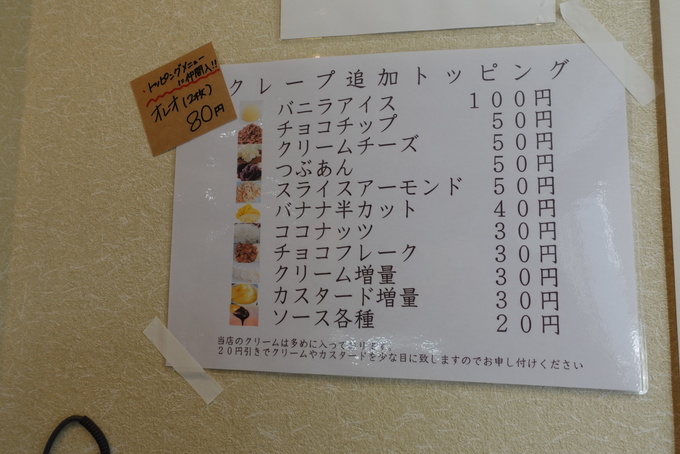 トッピングメニュー
に仲間入!!
オレオ(2枚)
80円
クレープ追加トッピング
バニラアイス 100円
チョコチップ 50円
クリームチーズ 50円
つぶあん 50円
スライスアーモンド 50円
バナナ半カット 40円
ココナッツ 30円
チョコフレーク 30円
クリーム増量 30円
カスタード増量 30円
ソース各種 20円
当店のクリームは多めに入っております。
20円引きでクリームやカスタードを少な目に致しますのでお申し付けください